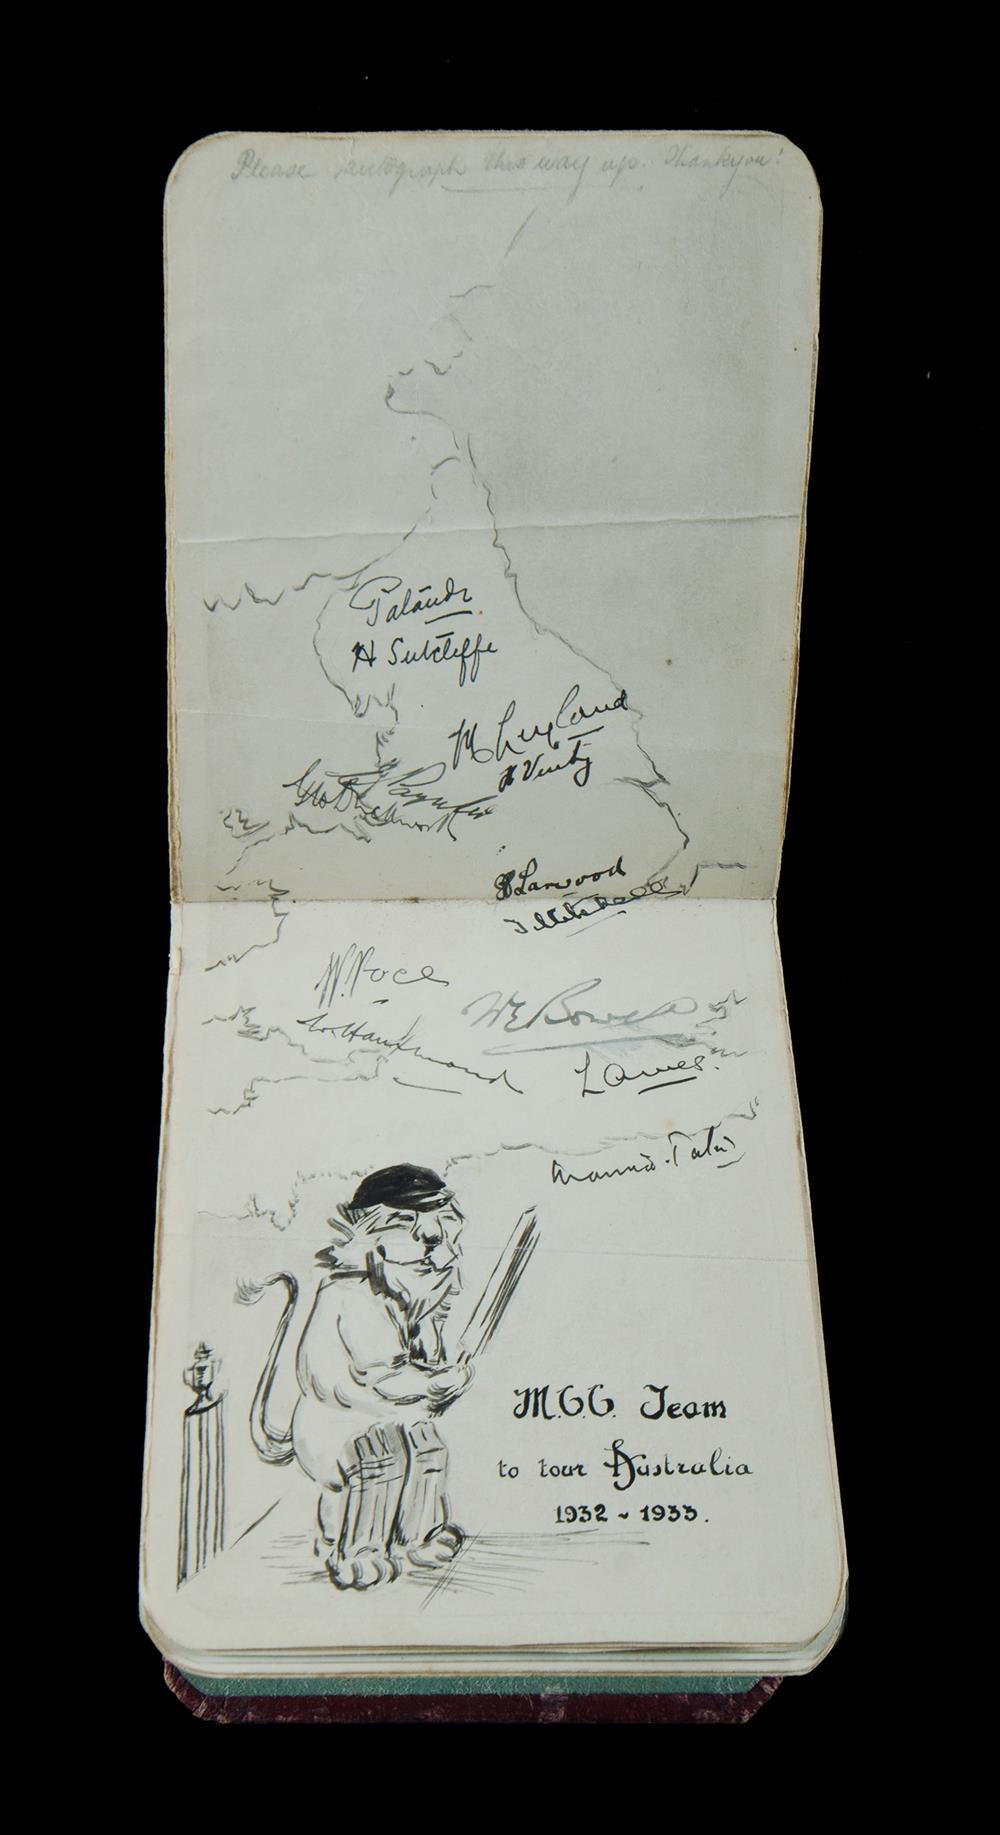 Please autograph this way up. Thankyou!
Pataudi.
H Sutcliffe
M Leyland
H Verity
E Paynter
Geo Duckworth
H Larwood
T Mitchell
W. Voce
WE Bowes
W. Hammond
L Ames.
Maurice. Tate
M.C.C. Team
to tour Australia
1932 ~ 1933.